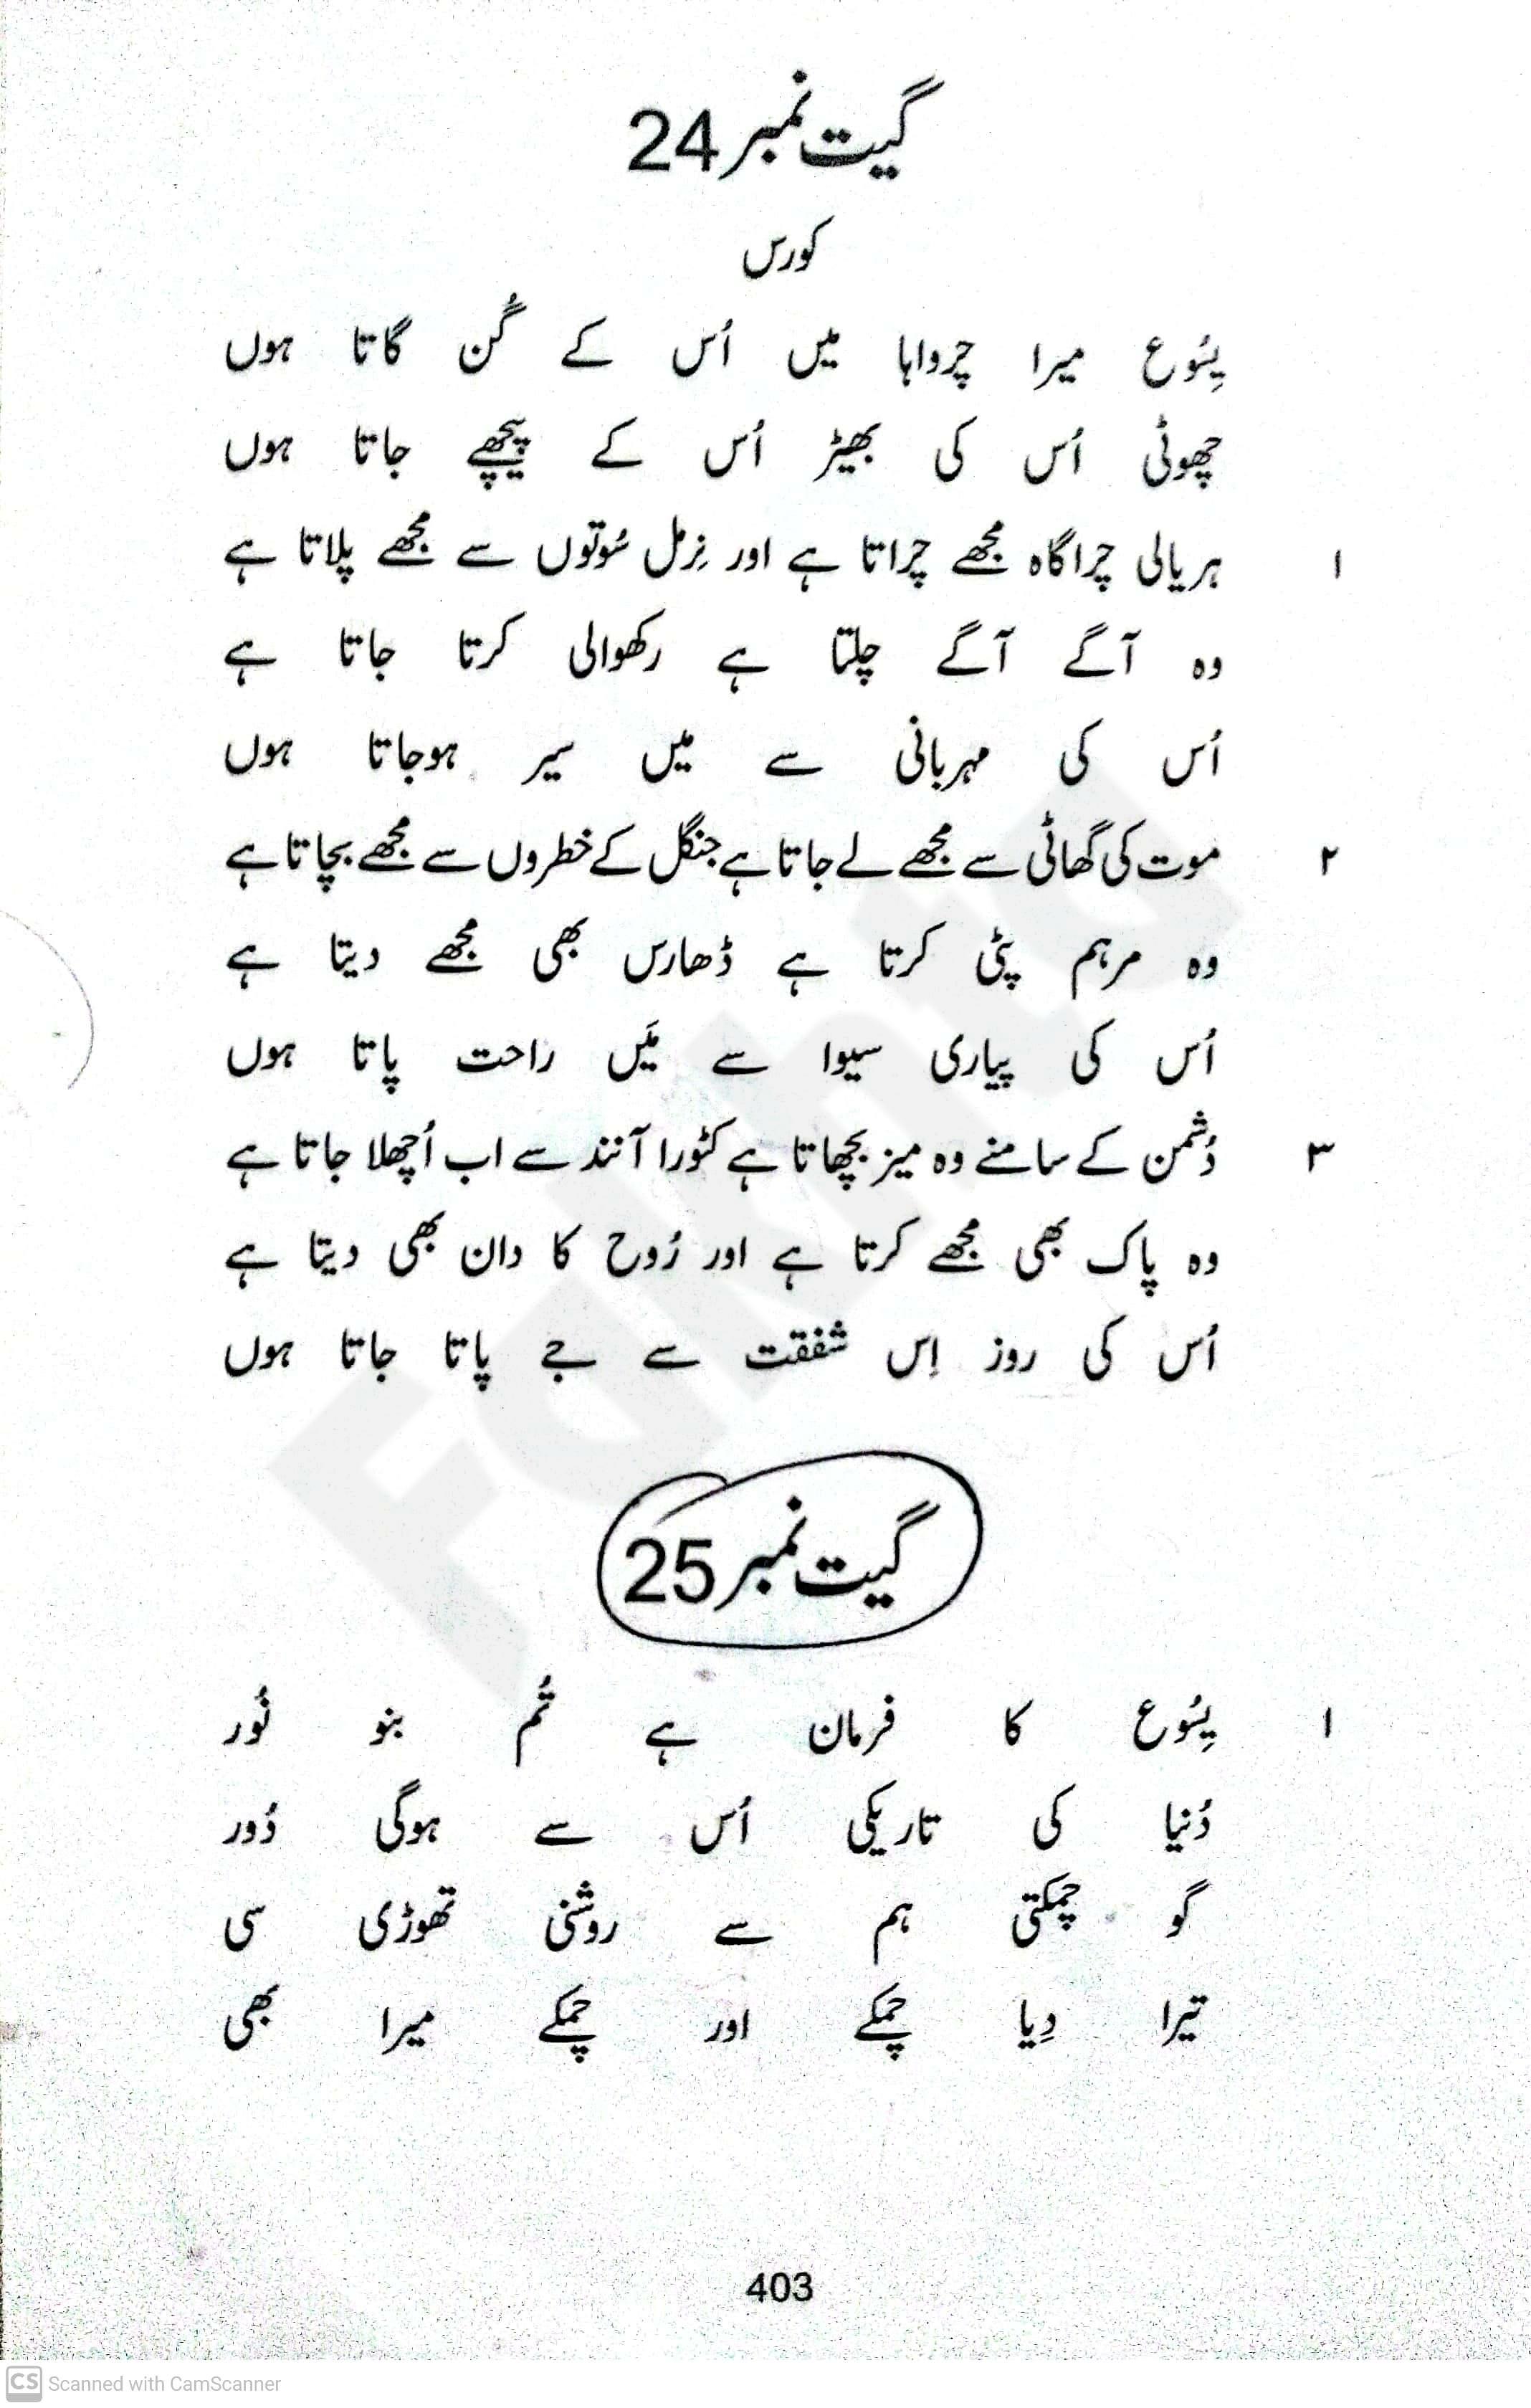 گیت نمبر 24
کورس
یِسُوع میرا چرواہا میں اُس کے گُن گاتا ہوں
چھوٹی اُس کی بھیڑ اُس کے پیچھے جاتا ہوں
۱ ہریالی چراگاہ مجھے چراتا ہے اور نِرمل سُوتوں سے مجھے پلاتا ہے
وہ آگے آگے چلتا ہے رکھوالی کرتا جاتا ہے
اُس کی مہربانی سے میں سیر ہوجاتا ہوں
۲ موت کی گھاٹی سے مجھے لے جاتا ہے جنگل کے خطروں سے مجھے بچاتا ہے
وہ مرہم پٹی کرتا ہے ڈھارس بھی مجھے دیتا ہے
اُس کی پیاری سیوا سے مَیں راحت پاتا ہوں
۳ دُشمن کے سامنے وہ میز بچھاتا ہے کٹورا آنند سے اب اُچھلا جاتا ہے
وہ پاک بھی مجھے کرتا ہے اور رُوح کا دان بھی دیتا ہے
اُس کی روز اِس شفقت سے جے پاتا جاتا ہوں
گیت نمبر 25
۱ یِسُوع کا فرمان ہے تُم بنو نُور
دُنیا کی تاریکی اُس سے ہوگی دُور
گو چمکتی ہم سے روشنی تھوڑی سی
تیرا دِیا چمکے اور چمکے میرا بھی
403
CS Scanned with CamScanner